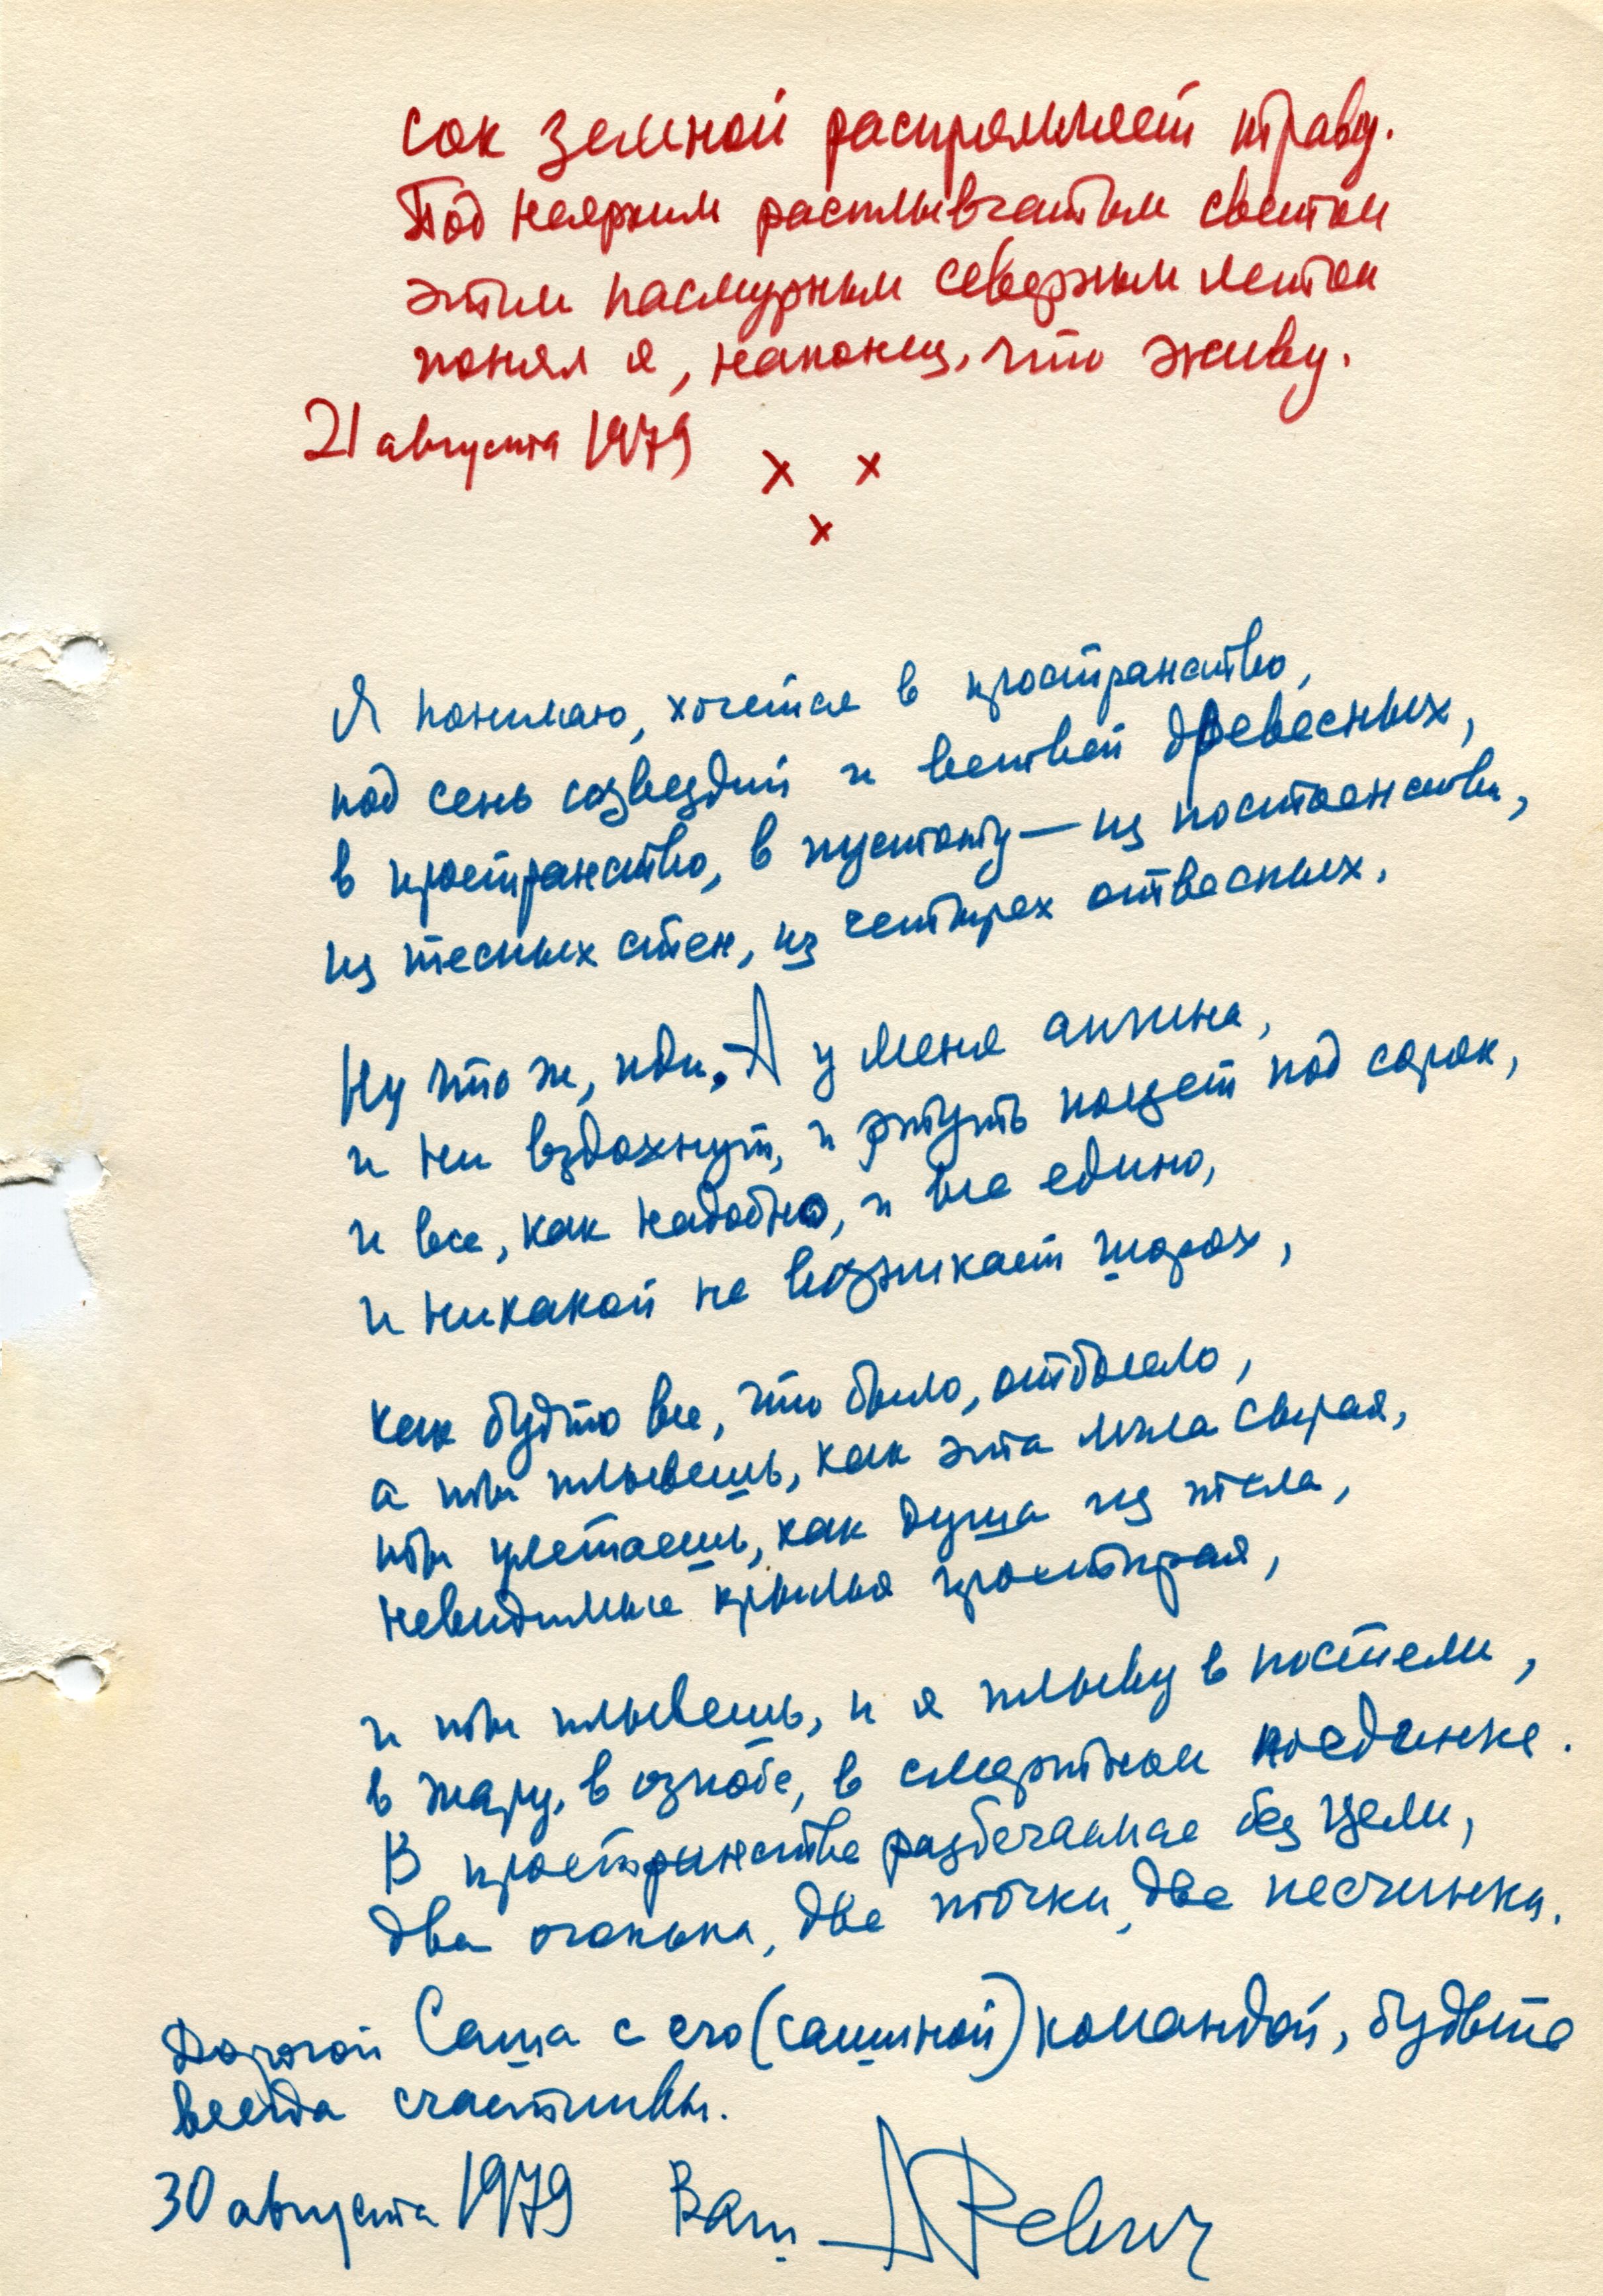 сок земной распрямляет траву.
Под неярким расплывчатым светом
этим пасмурным северным летом
понял я, наконец, что живу.
21 августа 1979
х х
х
Я понимаю, хочется в пространство,
под сень созвездий и ветвей древесных,
в пространство, в пустоту — из постоянства,
из тесных стен, из четырех отвесных.
Ну что ж, иди. А у меня ангина,
и ни вздохнуть, и ртуть ползет под сорок,
и все, как надобно, и все едино,
и никакой не возникает шорох,
как будто все, что было, отболело,
а ты плывешь, как эта мгла сырая,
ты улетаешь, как душа из тела,
невидимые крылья простирая,
и ты плывешь, и я плыву в постели,
в жару, в ознобе, в смертном поединке.
В пространстве разбегаемся без цели,
два огонька, две точки, две песчинки.
Дорогой Саша с его (сашиной) командой, будьте
всегда счастливы.
30 августа 1979 Ваш АРевич